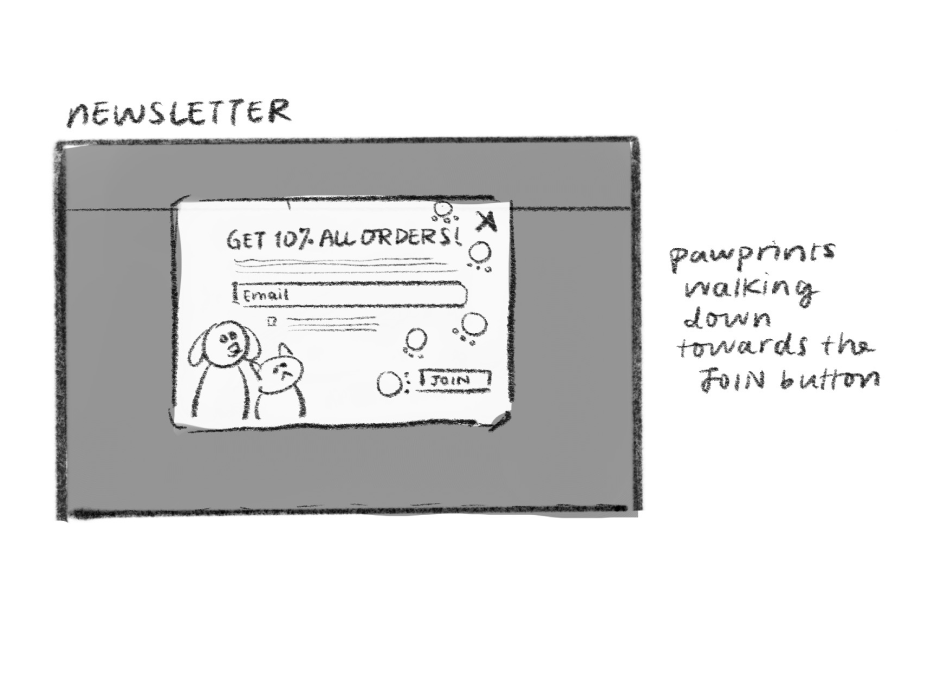 NEWSLETTER
X
GET 10% ALL ORDERS!
Email
JOIN
pawprints
walking
down
towards the
JOIN button